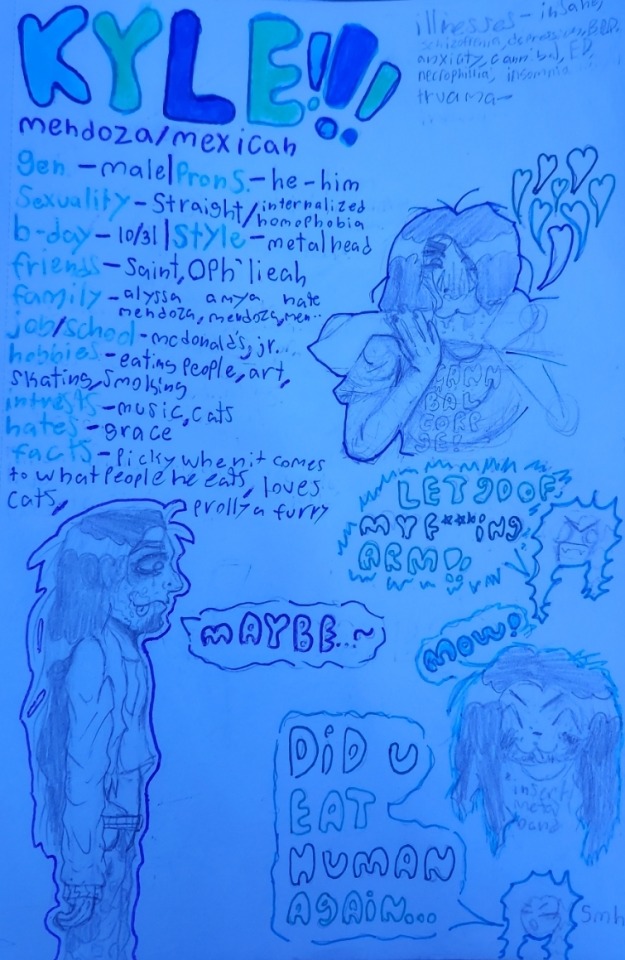 KYLE!!!
mendoza/mexican
gen - male | Prons. - he-him
Sexuality - Straight/internalized homophobia
b-day - 10/31 | Style - metalhead
friends - Saint, Oph`lieah
family - alyssa amya nate
mendoza, mendoza, men..
job/school - mcdonald's, jr.
hobbies - eating people, art,
skating, smoking
intrests - music, cats
hates - grace
facts - picky when it comes
to what people he eats, loves
cats, prolly a furry
illnesses - insane,
schizofrenia, depression, BPD,
anxiaty, cannibal, ED,
necrophillia, insomnia
truama-
CANN
BAL
CORP
SE!
LET GO OF
MY F**KING
ARM!
MAYBE...~
MOW!
insert
metal
band
DiD U
EAT
HUMAN
AGAIN...
smh